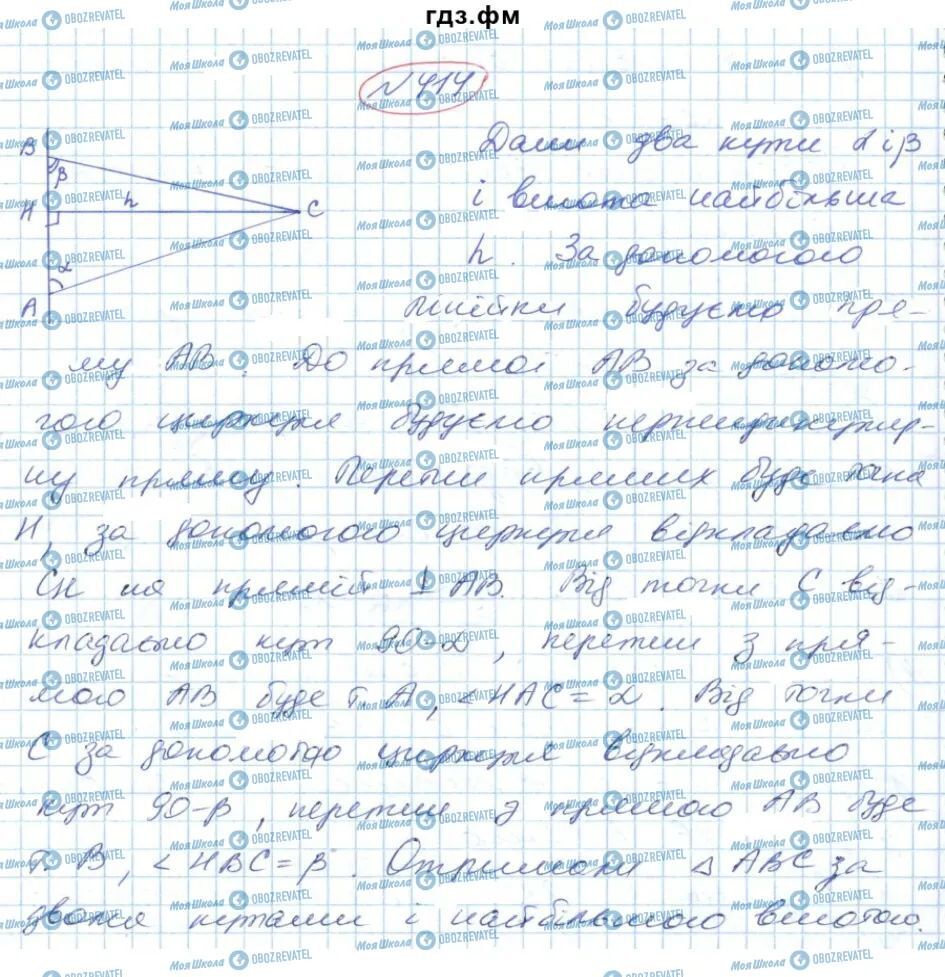 гдз.фм
№ 414
Дани два кути α і β
і висота найбільша
h. За допомогою
лінійки будуємо пря-
му AB. До прямої AB за допомо-
гою циркуля будуємо перпендикуляр-
ну пряму. Перетин прямих буде точка
H, за допомогою циркуля відкладаємо
CH на прямій ⊥ AB. Від точки C від-
кладаємо кут 90-α, перетин з пря-
мою AB буде т A, <HAC = α. Від точки
C за допомогою циркуля відкладаємо
кут 90-β, перетин з прямою AB буде
т B, <HBC = β. Отримали △ ABC за
двома кутами і найбільшою висотою.
B
β
H
h
C
α
A
Моя Школа OBOZREVATEL